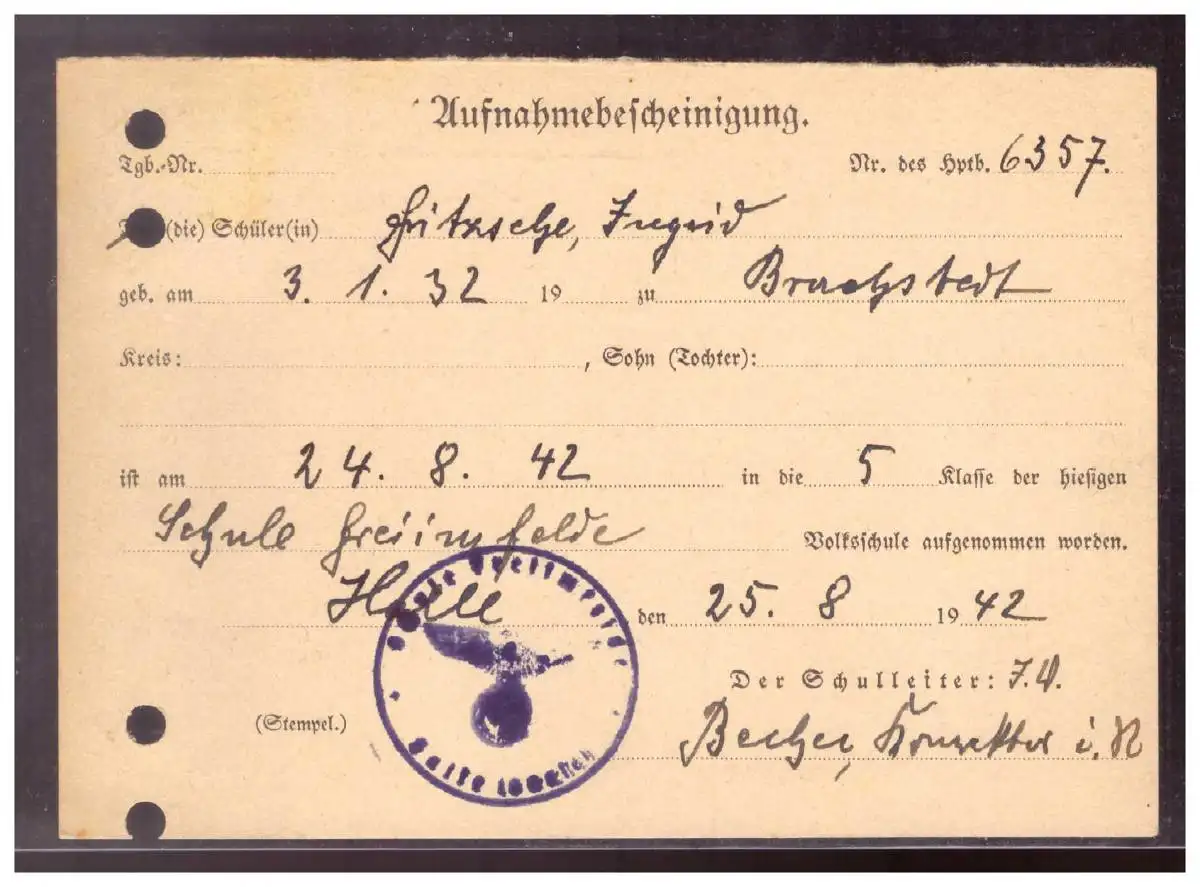 Aufnahmebescheinigung.
Tgb.-Nr. Nr. des Hptb. 6357.
(die) Schüler(in) Fritzsche, Ingrid
geb. am 3. 1. 32 19 zu Brachstedt
Kreis: , Sohn (Tochter):
ist am 24. 8. 42 in die 5 Klasse der hiesigen
Schule Freiimfelde Volksschule aufgenommen worden.
Halle den 25. 8 1942
Der Schulleiter: I.V.
(Stempel.) Becher, Konrektor i. R
Schule Freiimfelde
Halle (Saale)